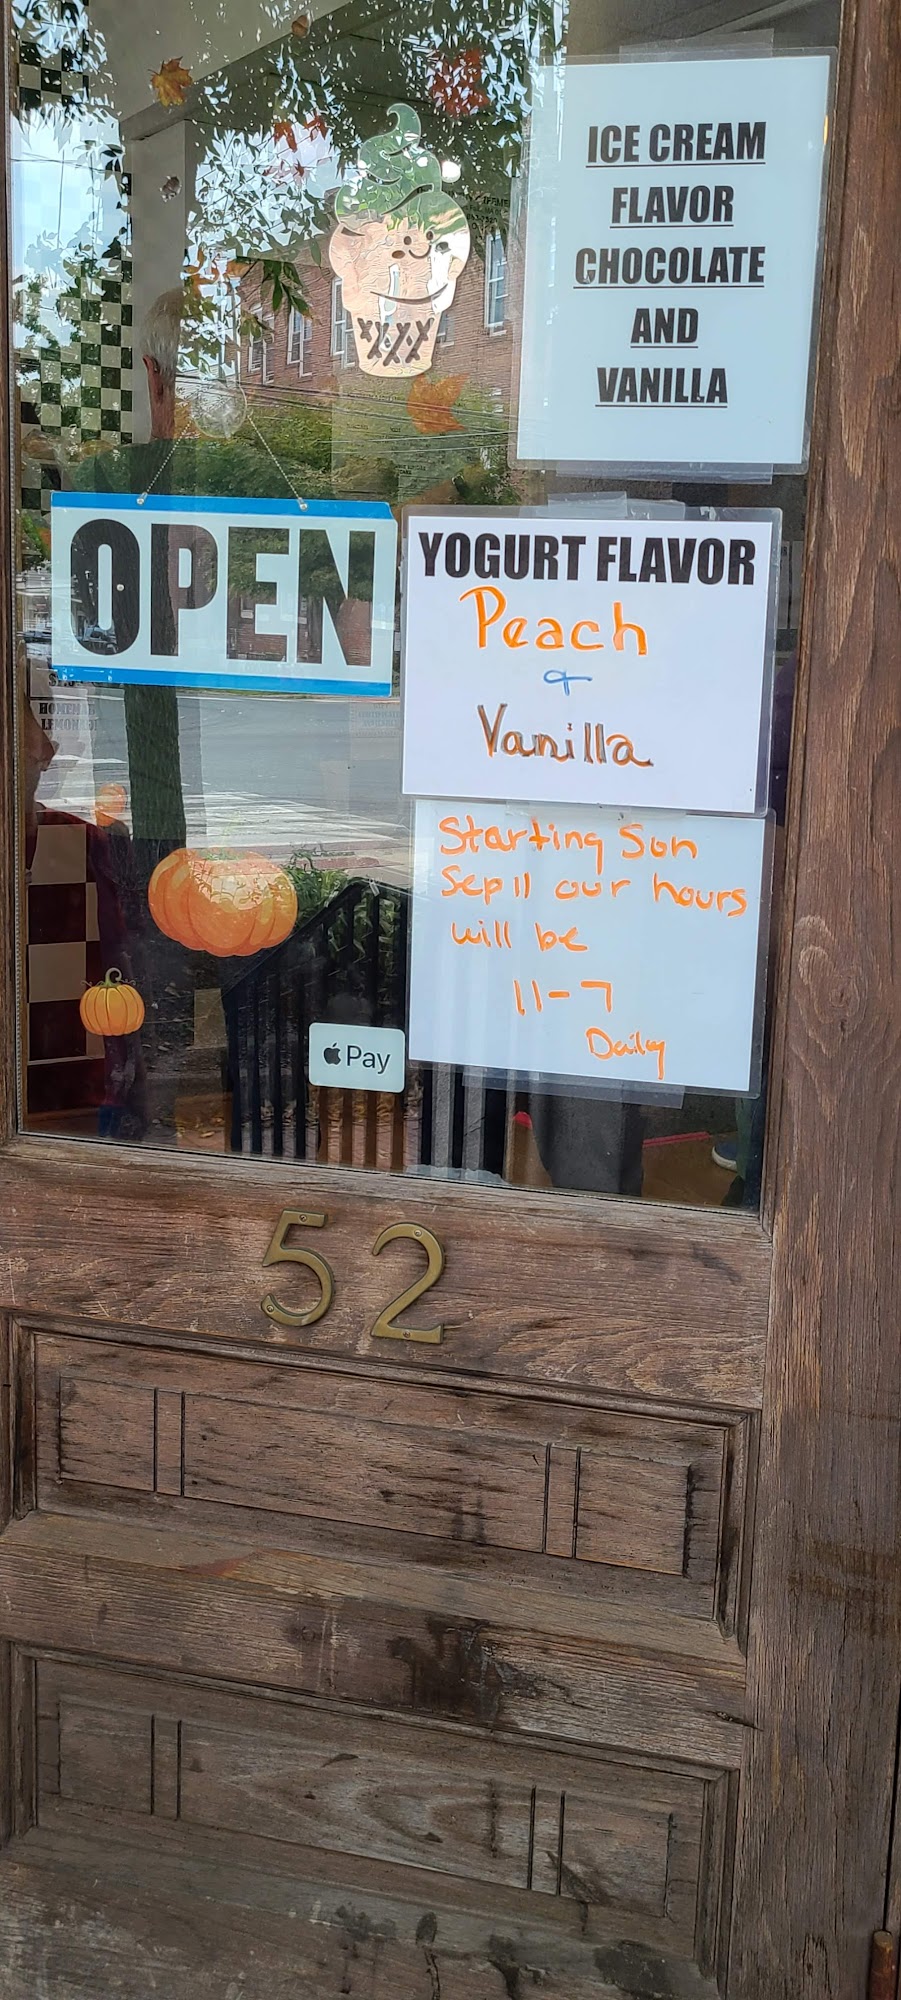 ICE CREAM
FLAVOR
CHOCOLATE
AND
VANILLA
OPEN
YOGURT FLAVOR
Peach
&
Vanilla
Starting Sun
Sep 11 our hours
will be
11-7
Daily
Pay
52